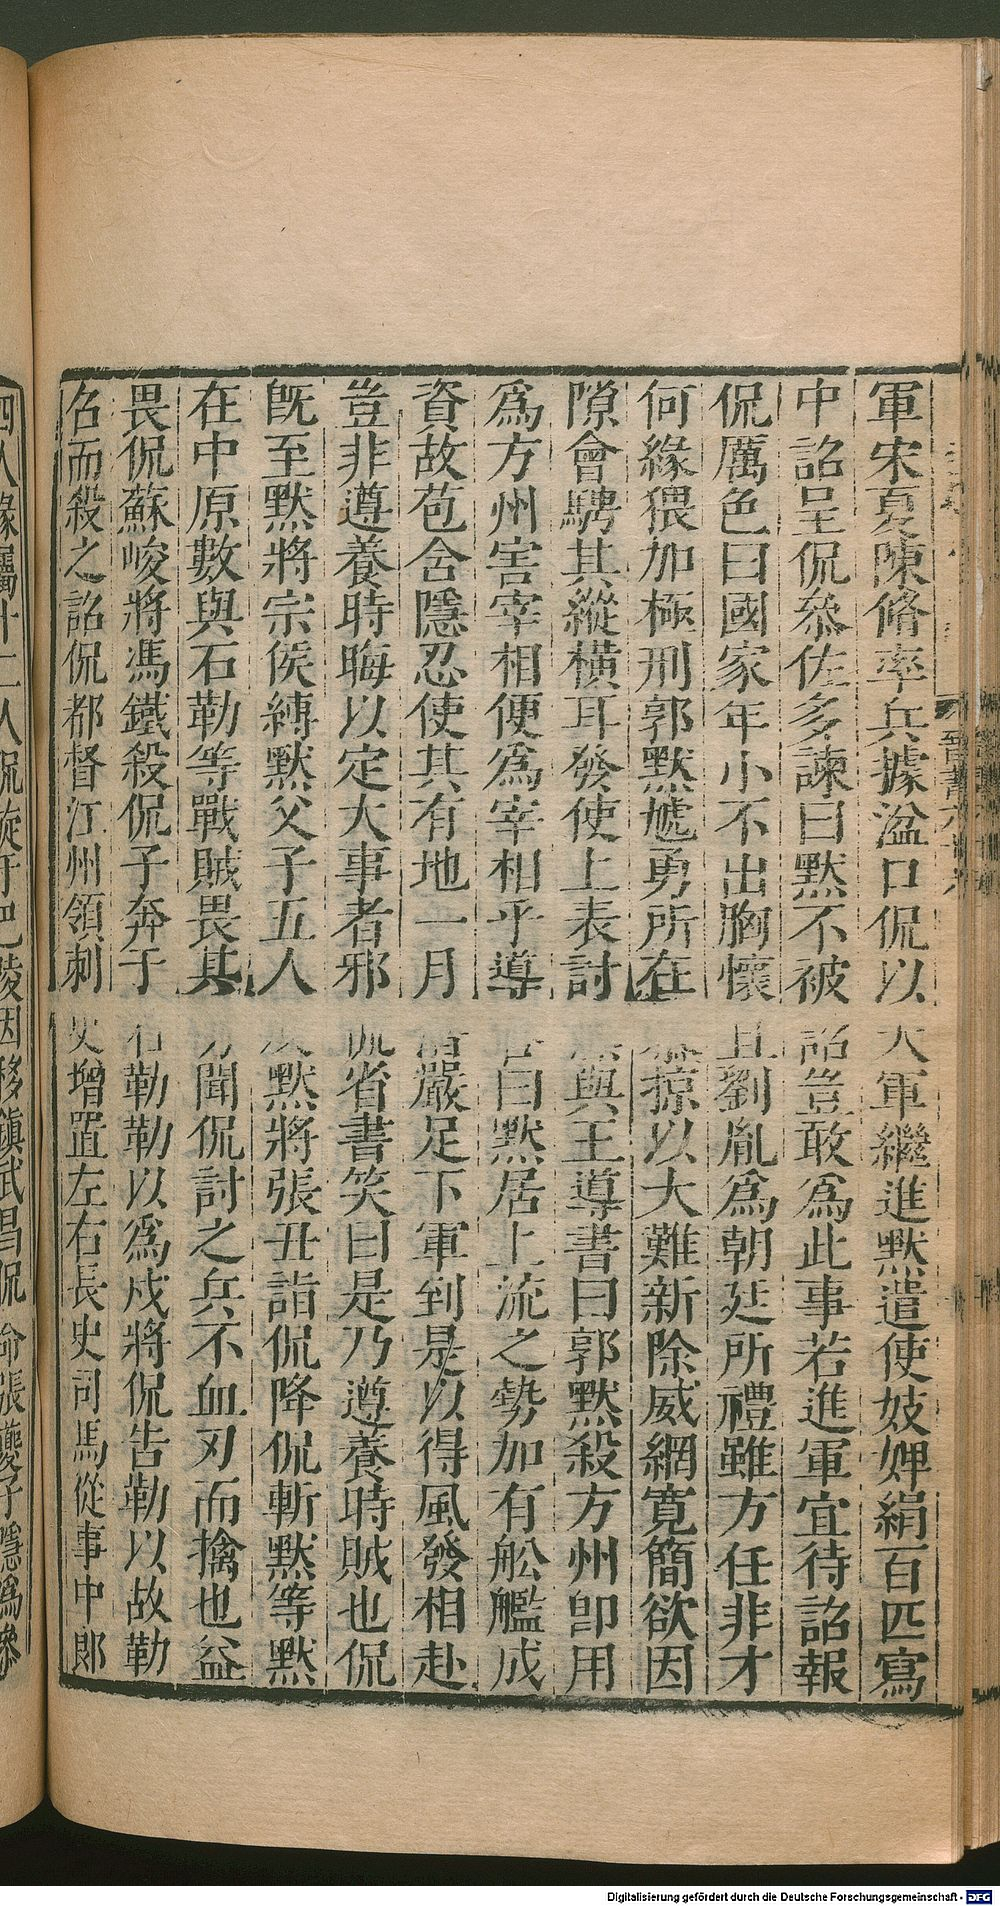 軍宋夏陳脩率兵據湓口侃以大軍繼進默遣使妓婢絹百匹寫
中詔呈侃叅佐多諫曰默不被詔豈敢爲此事若進軍宜待詔報
侃厲色曰國家年小不出胸懷且劉胤爲朝廷所禮雖方任非才
何緣猥加極刑郭默虓勇所在暴掠以大難新除威網寬簡欲因
隙會騁其縱橫耳發使上表討默與王導書曰郭默殺方州卽用
爲方州害宰相便爲宰相乎導答曰默居上流之勢加有舩艦成
資故苞含隱忍使其有地一月潛嚴足下軍到是以得風發相赴
豈非遵養時晦以定大事者邪侃省書笑曰是乃遵養時賊也侃
旣至默將宗侯縛默父子五人及默將張丑詣侃降侃斬默等默
在中原數與石勒等戰賊畏其勇聞侃討之兵不血刃而擒也益
畏侃蘇峻將馮鐵殺侃子奔于石勒勒以爲戍將侃告勒以故勒
召而殺之詔侃都督江州領刺史增置左右長史司馬從事中郎
四人掾屬十二人侃旋于巴陵因移鎭武昌侃命張夔子隱爲參
Digitalisierung gefördert durch die Deutsche Forschungsgemeinschaft - DFG